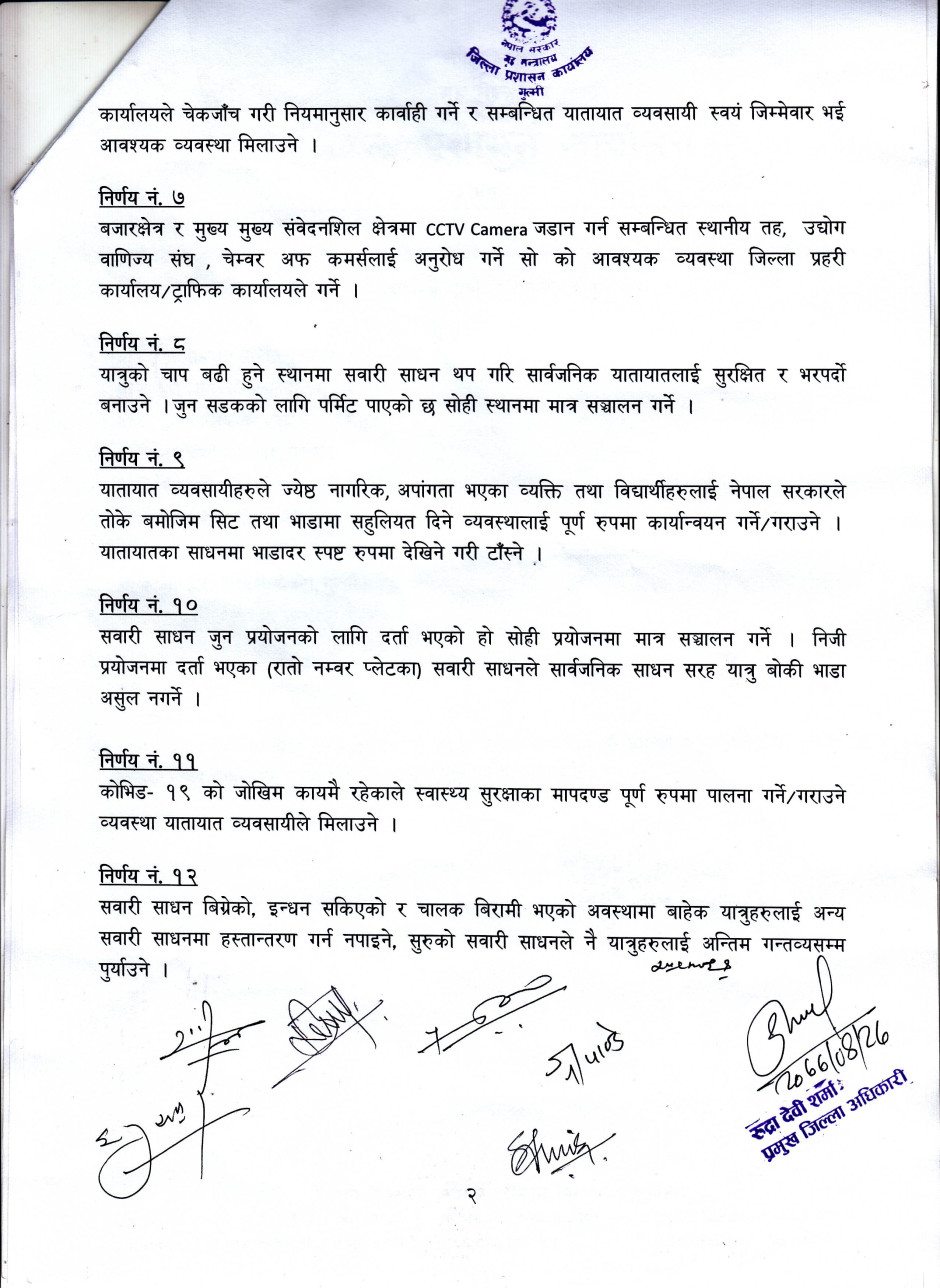 नेपाल सरकार
गृह मन्त्रालय
जिल्ला प्रशासन कार्यालय
गुल्मी
कार्यालयले चेकजाँच गरी नियमानुसार कार्वाही गर्ने र सम्बन्धित यातायात व्यवसायी स्वयं जिम्मेवार भई
आवश्यक व्यवस्था मिलाउने ।
निर्णय नं. ७
बजारक्षेत्र र मुख्य मुख्य संवेदनशिल क्षेत्रमा CCTV Camera जडान गर्न सम्बन्धित स्थानीय तह, उद्योग
वाणिज्य संघ , चेम्वर अफ कमर्सलाई अनुरोध गर्ने सो को आवश्यक व्यवस्था जिल्ला प्रहरी
कार्यालय/ट्राफिक कार्यालयले गर्ने ।
निर्णय नं. ८
यात्रुको चाप बढी हुने स्थानमा सवारी साधन थप गरि सार्वजनिक यातायातलाई सुरक्षित र भरपर्दो
बनाउने ।जुन सडकको लागि पर्मिट पाएको छ सोही स्थानमा मात्र सञ्चालन गर्ने ।
निर्णय नं. ९
यातायात व्यवसायीहरुले ज्येष्ठ नागरिक, अपांगता भएका व्यक्ति तथा विद्यार्थीहरुलाई नेपाल सरकारले
तोके बमोजिम सिट तथा भाडामा सहुलियत दिने व्यवस्थालाई पूर्ण रुपमा कार्यान्वयन गर्ने/गराउने ।
यातायातका साधनमा भाडादर स्पष्ट रुपमा देखिने गरी टाँस्ने ।
निर्णय नं. १०
सवारी साधन जुन प्रयोजनको लागि दर्ता भएको हो सोही प्रयोजनमा मात्र सञ्चालन गर्ने । निजी
प्रयोजनमा दर्ता भएका (रातो नम्वर प्लेटका) सवारी साधनले सार्वजनिक साधन सरह यात्रु बोकी भाडा
असुल नगर्ने ।
निर्णय नं. ११
कोभिड- १९ को जोखिम कायमै रहेकाले स्वास्थ्य सुरक्षाका मापदण्ड पूर्ण रुपमा पालना गर्ने/गराउने
व्यवस्था यातायात व्यवसायीले मिलाउने ।
निर्णय नं. १२
सवारी साधन बिग्रेको, इन्धन सकिएको र चालक बिरामी भएको अवस्थामा बाहेक यात्रुहरुलाई अन्य
सवारी साधनमा हस्तान्तरण गर्न नपाइने, सुरुको सवारी साधनले नै यात्रुहरुलाई अन्तिम गन्तव्यसम्म
पुर्याउने ।
रुद्रा देवी शर्मा
प्रमुख जिल्ला अधिकारी
२